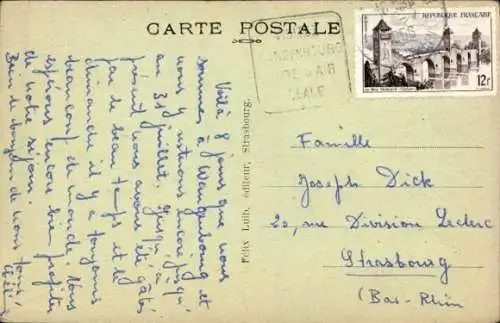 CARTE POSTALE
RÉPUBLIQUE FRANÇAISE
12F
Voilà 8 jours que nous
sommes à Wangenbourg et
nous y restons encore jusqu'
au 31 juillet. Jusqu'à
présent nous avons été gâtés
par de beau temps et le
dimanche il y a toujours
beaucoup de monde. Nous
espérons encore bien profiter
de notre séjour.
Bien le bonjour de nous tous
Félix Luib, éditeur, Strasbourg.
Famille
Joseph Dick
22, rue Division Leclerc
Strasbourg
(Bas-Rhin